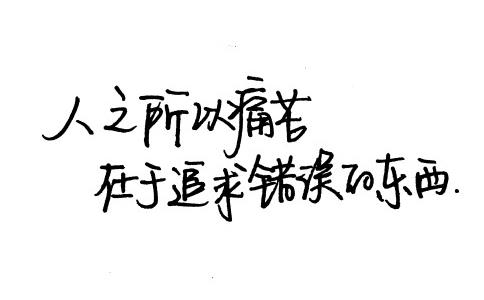 人之所以痛苦
在于追求错误的东西.